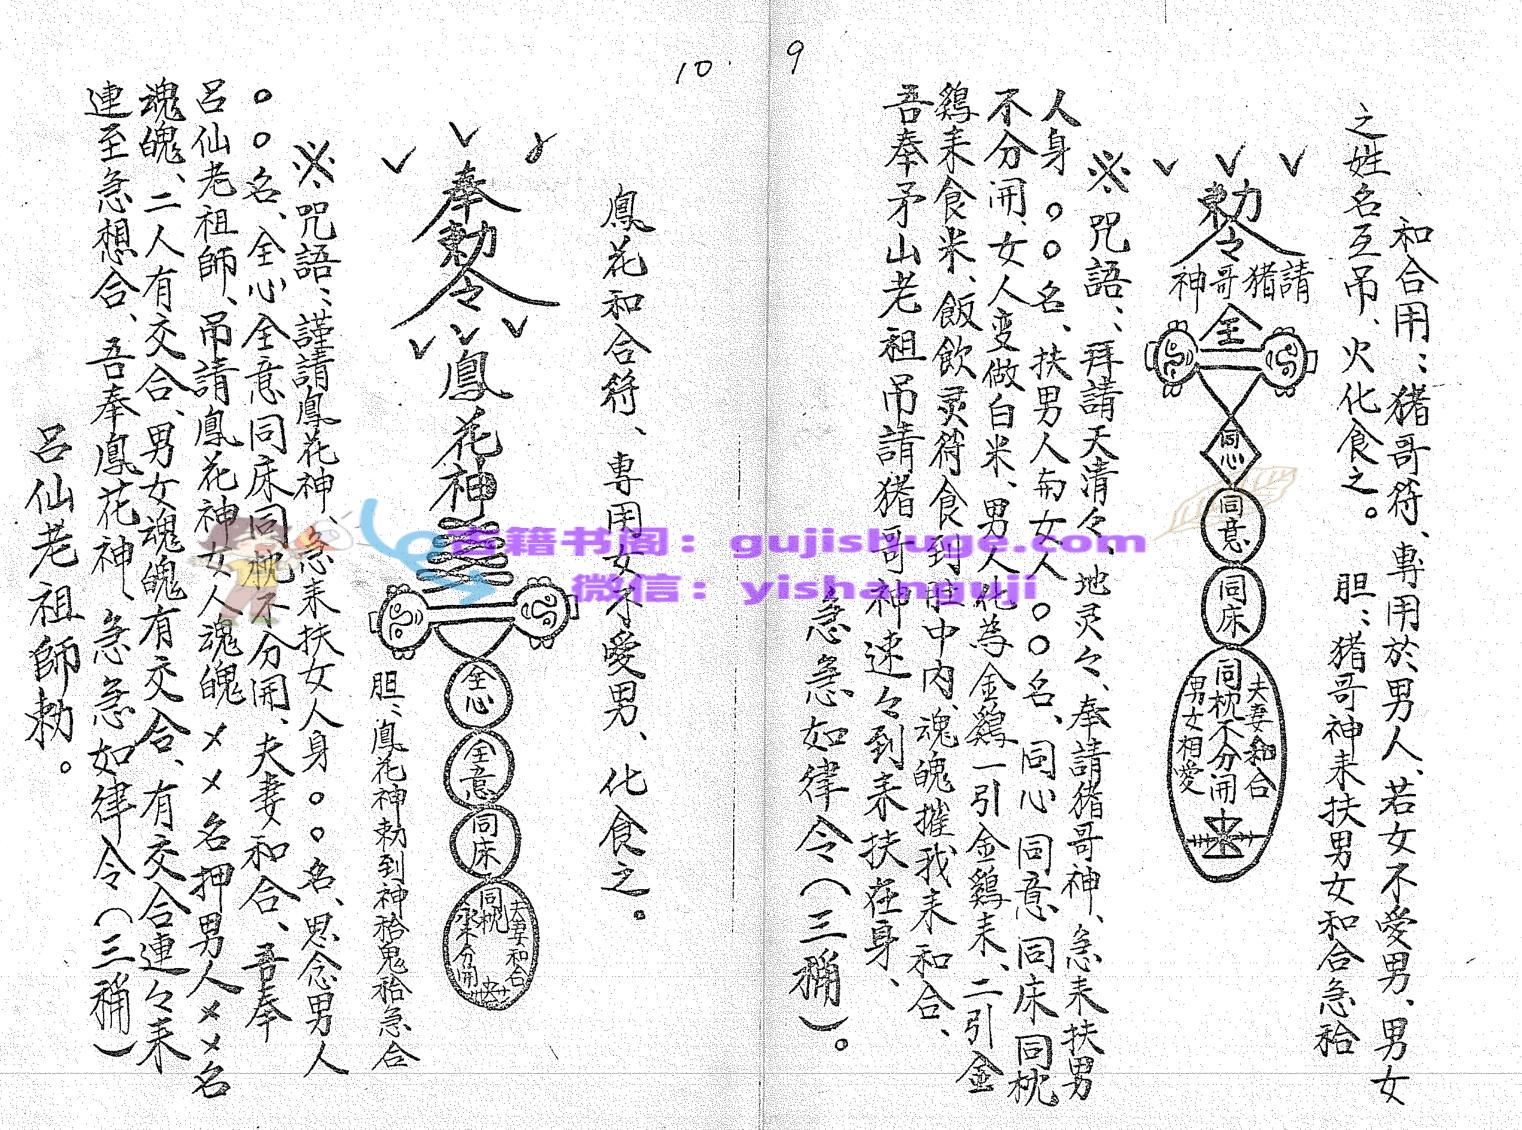 9
和合用：猪哥符、專用於男人、若女不愛男、男女
之姓名互吊、火化食之。
胆：猪哥神来扶男女和合急
勅令
神哥猪請
全
同心
同意
同床
夫妻和合
同枕不分開
男女相愛
※咒語：拜請天清々、地灵々、奉請猪哥神、急来扶男
人身。○○名、扶男人䓁女人○○名、同心同意同床同枕
不分開、女人变做白米、男人化為金鷄一引金鷄来、二引金
鷄来食米、飯飲灵符食到肚中內、魂魄摧我来和合、
吾奉矛山老祖吊請猪哥神速々到来扶在身、
急急如律令（三稱）。
10
鳳花和合符、專用女不愛男、化食之。
奉勅令
鳳花神
全心
全意
同床
夫妻和合
同枕
永不分開
胆：鳳花神勅到神
※咒語：謹請鳳花神、急来扶女人身○○名、思念男人
○○名、全心全意同床同枕不分開、夫妻和合、吾奉
呂仙老祖師、吊請鳳花神女人魂魄㐅㐅名押男人㐅㐅名
魂魄、二人有交合、男女魂魄有交合、有交合連々来
連至急想合、吾奉鳳花神、急急如律令（三稱）
呂仙老祖師勅。
古籍书阁：gujishuge.com
微信：yishanguji